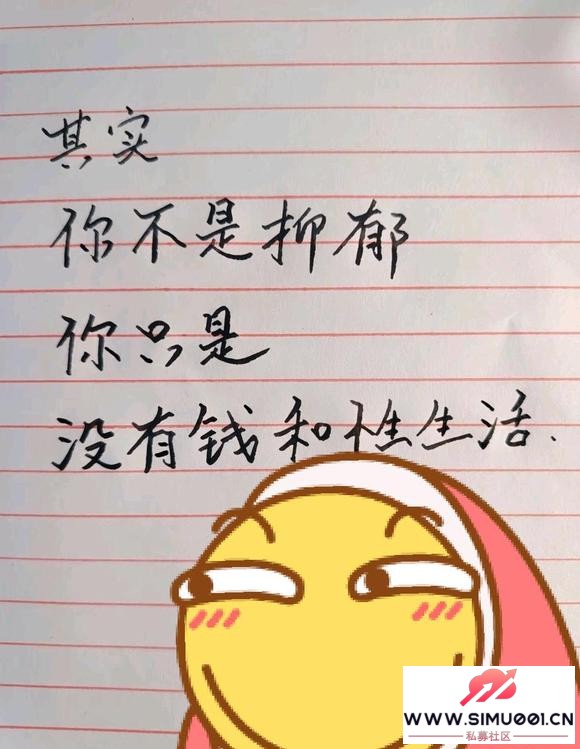 其实
你不是抑郁
你只是
没有钱和性生活.
WWW.SIMU001.CN
私募社区